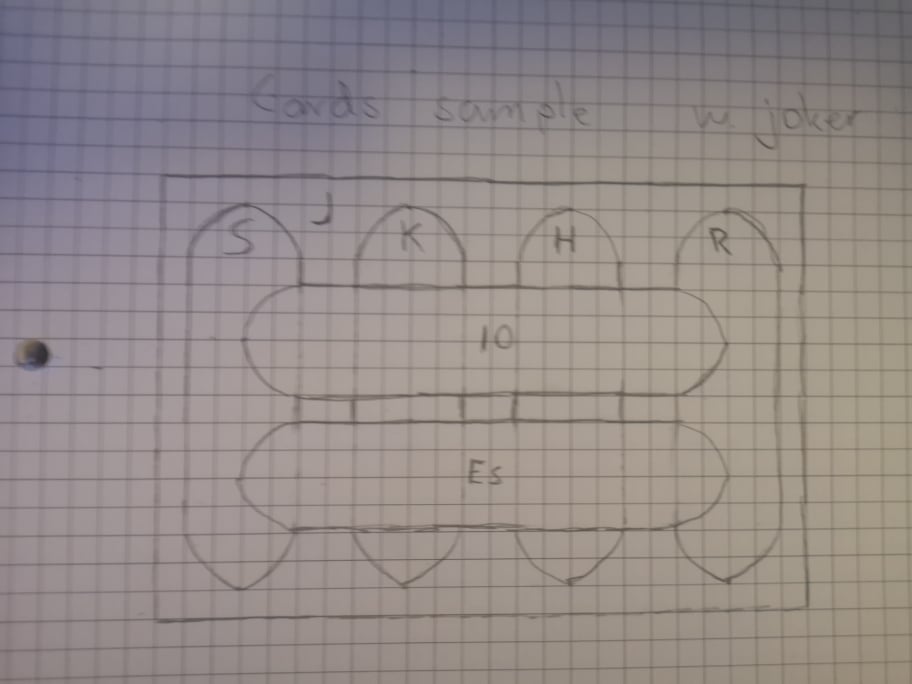 Cards sample w. joker
S J K H R
10
Es